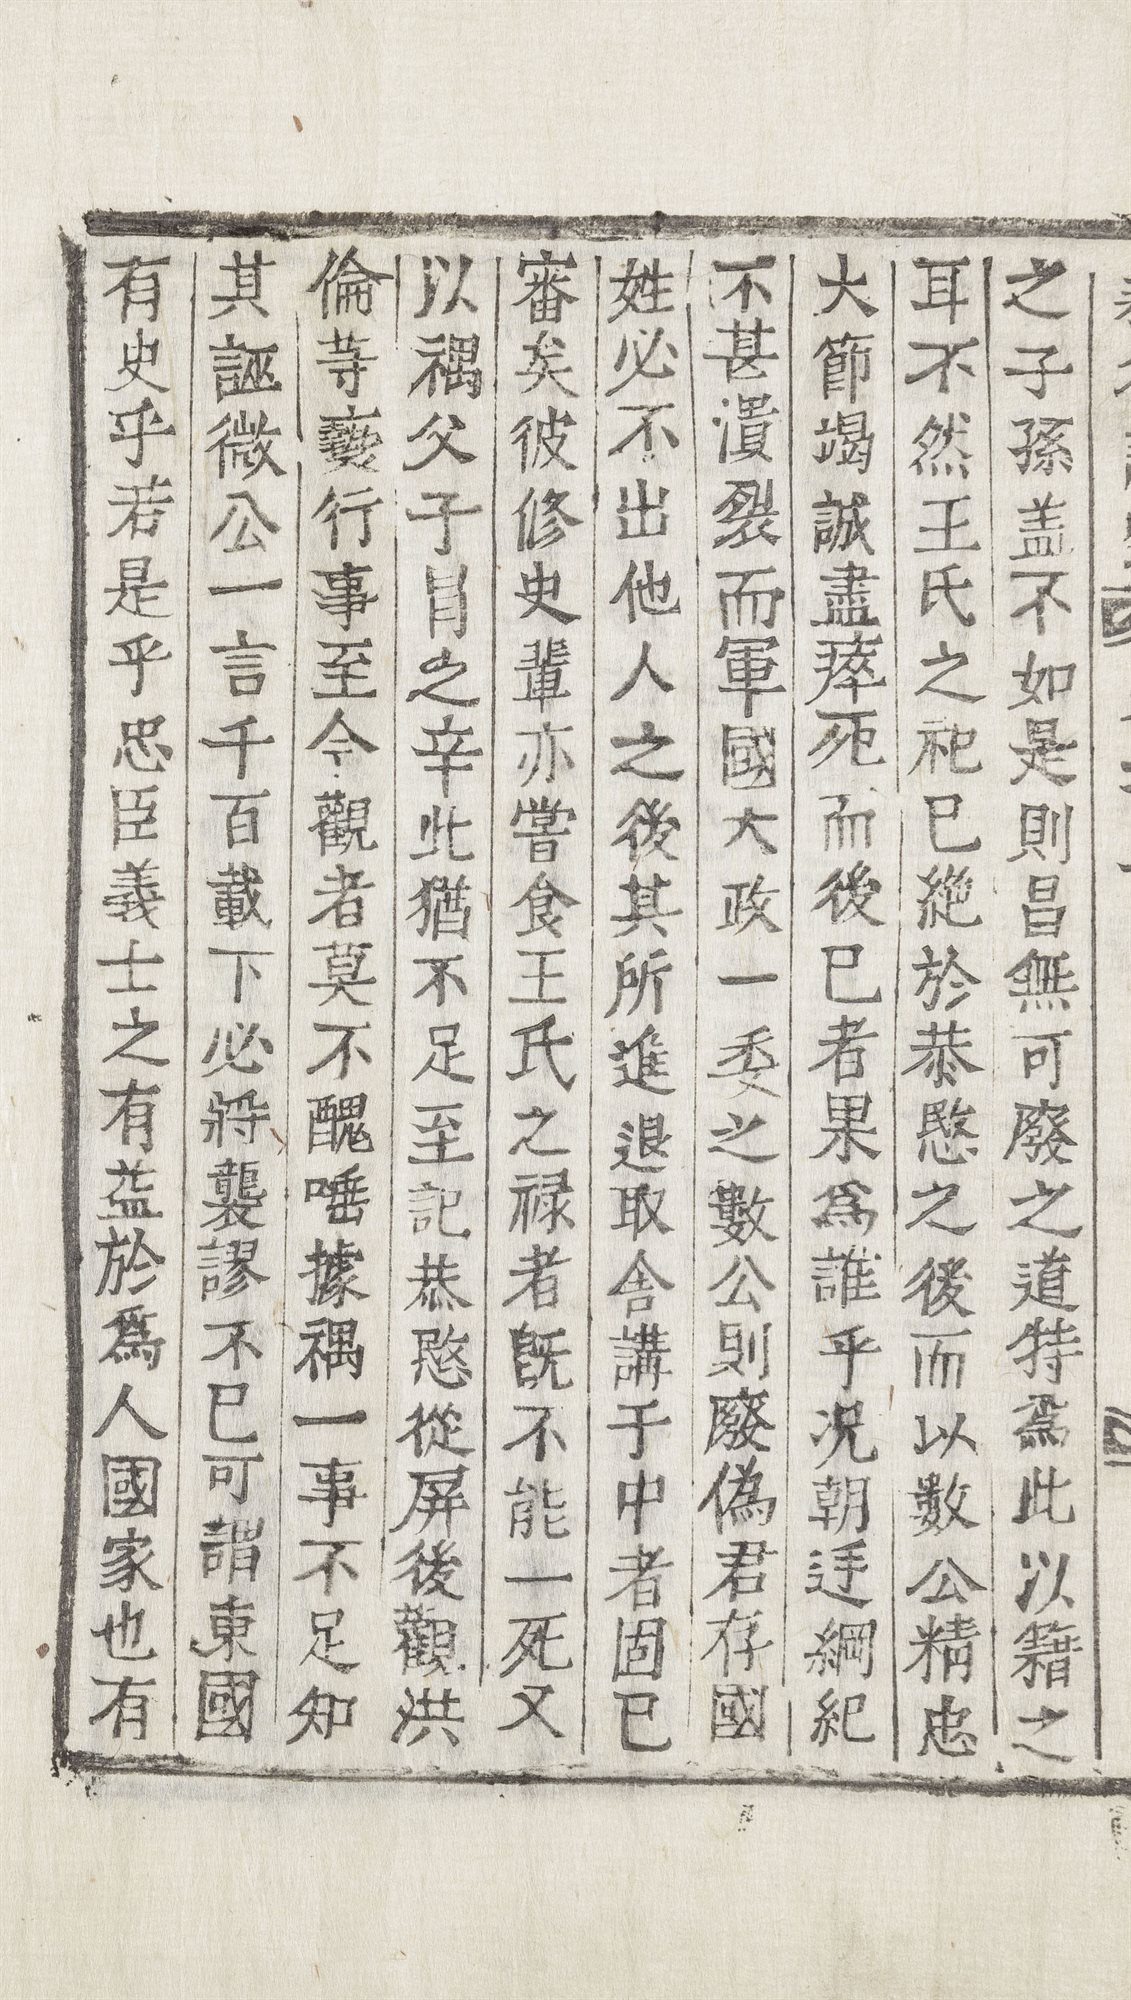 之子孫盖不如是則昌無可廢之道特爲此以籍之
耳不然王氏之祀已絶於恭愍之後而以數公精忠
大節竭誠盡瘁死而後已者果爲誰乎况朝廷綱紀
不甚潰裂而軍國大政一委之數公則廢僞君存國
姓必不出他人之後其所進退取舍講于中者固已
審矣彼修史輩亦嘗食王氏之禄者旣不能一死又
以禑父子冐之辛此猶不足至記恭愍從屏後觀洪
倫等䙝行事至今觀者莫不醜唾據禑一事不足知
其誣微公一言千百載下必將襲謬不已可謂東國
有史乎若是乎忠臣義士之有益於爲人國家也有